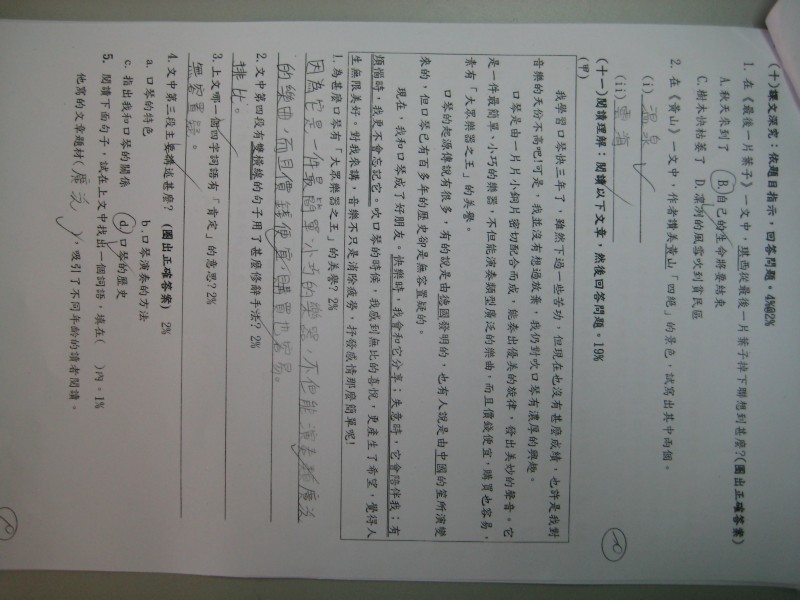 (十)課文深究：依題目指示，回答問題。4%@2%
1. 在《最後一片葉子》一文中，瓊西從最後一片葉子掉下聯想到甚麼?(圈出正確答案)
A. 秋天來到了 B. 自己的生命將要結束
C. 樹木快枯萎了 D. 凜冽的風雪吹到貧民區
2. 在《黃山》一文中，作者讚美黃山「四絕」的景色，試寫出其中兩個。
(i) 溫泉
(ii) 雲海
(十一)閱讀理解：閱讀以下文章，然後回答問題。19%
(甲)
我學習口琴快三年了，雖然下過一些苦功，但現在也沒有甚麼成績，也許是我對
音樂的天份不高吧!可是，我並沒有想過放棄，我仍對吹口琴有濃厚的興趣。
口琴是由一片片小銅片密切配合而成，能奏出優美的旋律，發出美妙的聲音。它
是一件最簡單、小巧的樂器，不但能演奏類型廣泛的樂曲，而且價錢便宜，購買也容易，
素有「大眾樂器之王」的美譽。
口琴的起源傳說有很多，有的說是由德國發明的，也有人說是由中國的笙所演變
來的，但口琴已有百多年的歷史卻是無容置疑的。
現在，我和口琴成了好朋友。快樂時，我會和它分享；失意時，它會陪伴我；有
煩惱時，我更不會忘記它。吹口琴的時候，我感到無比的喜悅，更產生了希望，覺得人
生無限美好。對我來講，音樂不只是消除疲勞，抒發感情那麼簡單呢!
1. 為甚麼口琴有「大眾樂器之王」的美譽? 2%
因為它是一件最簡單小巧的樂器，不但能演奏類廣泛
的樂曲，而且價錢便宜，購買也容易。
2. 文中第四段有雙橫線的句子用了甚麼修辭手法? 2%
排比。
3. 上文哪一個四字詞語有「肯定」的意思? 2%
無容置疑。
4. 文中第三段主要講述甚麼? (圈出正確答案) 2%
a. 口琴的特色 b. 口琴演奏的方法
c. 指出我和口琴的關係 d. 口琴的歷史
5. 閱讀下面句子，試在上文中找出一個詞語，填在( )內。1%
他寫的文章題材(廣泛)，吸引了不同年齡的讀者閱讀。